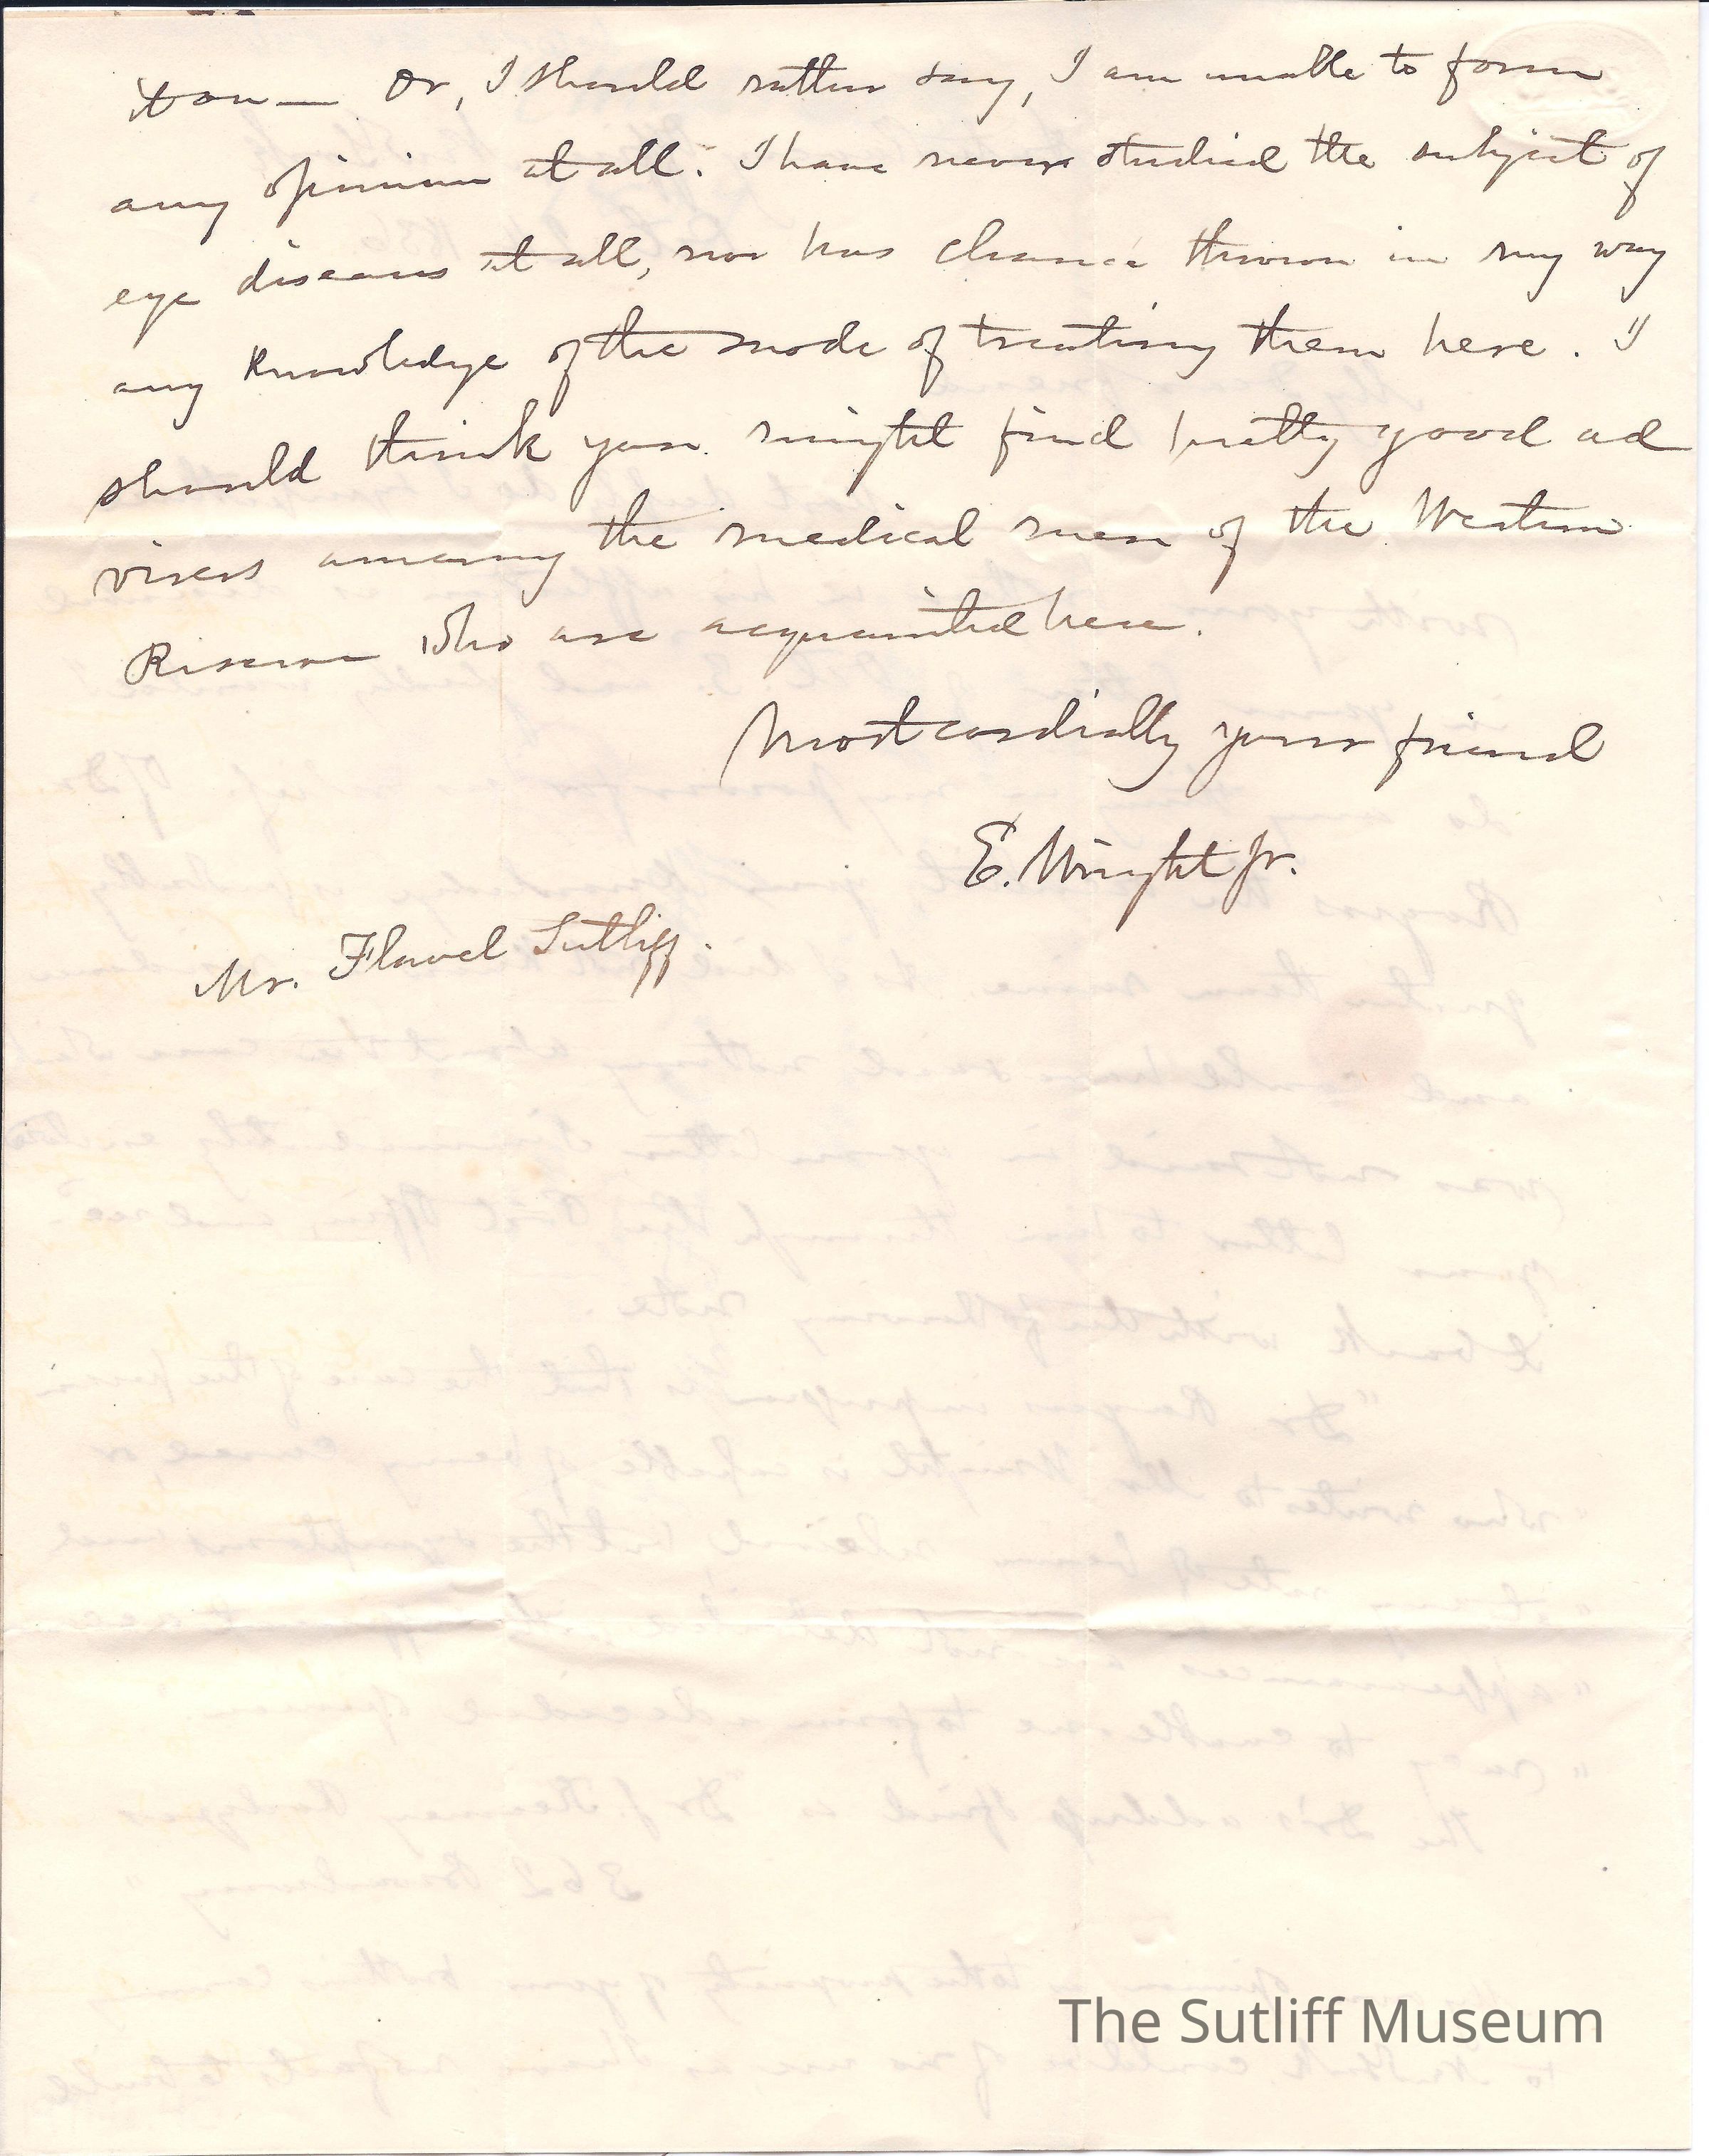 it on — Or, I should rather say, I am unable to form
any opinion at all. I have never studied the subject of
eye diseases at all, nor has chance thrown in my way
any knowledge of the mode of treating them here. I
should think you might find pretty good ad
visers among the medical men of the Western
Reserve who are acquainted here.
Most cordially your friend
E. Wright Jr.
Mr. Flavel Sutliff.
The Sutliff Museum